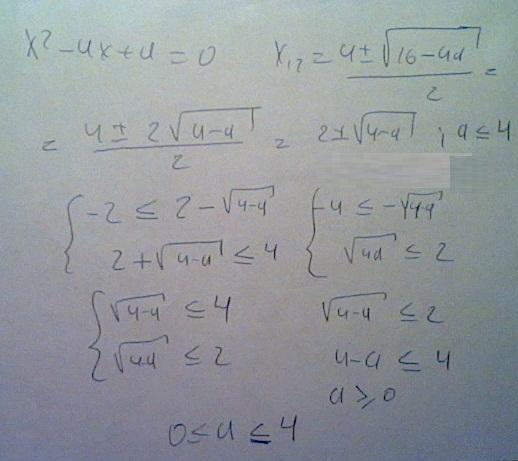 x² - 4x + a = 0    x₁,₂ = (4 ± √(16 - 4a)) / 2 =
= (4 ± 2√(4-a)) / 2 = 2 ± √(4-a) ; a ≤ 4
{ -2 ≤ 2 - √(4-a)    { -4 ≤ -√(4-a)
2 + √(4-a) ≤ 4    √(4-a) ≤ 2
{ √(4-a) ≤ 4    √(4-a) ≤ 2
√(4-a) ≤ 2    4-a ≤ 4
a ≥ 0
0 ≤ a ≤ 4